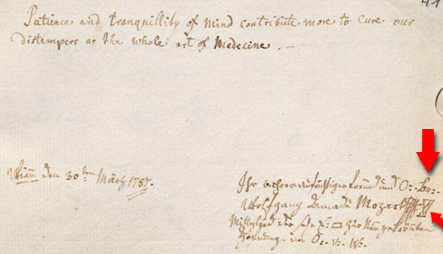 Patience and tranquillity of mind contribute more to cure our
distempers as the whole art of Medecine. —
Wienn den 30:ten März 1787.
Ihr wahrer aufrichtiger freund und O:. br:.
Wolfgang Amadè Mozart
Mitglied der zur Neugekrönten
Hoffnung im O:. v:. W:.